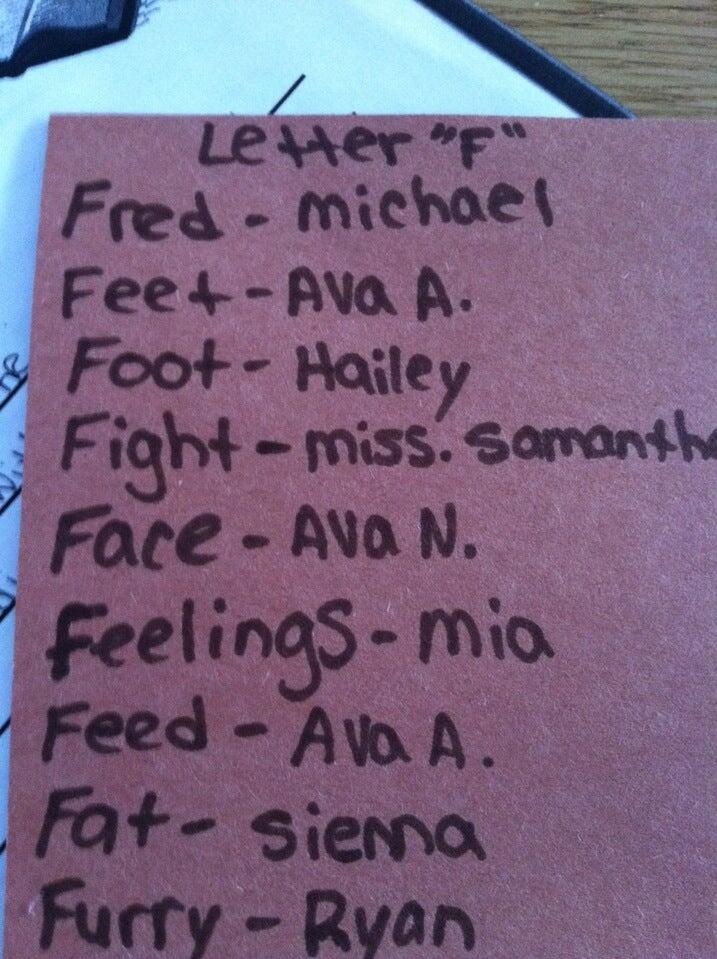 Letter "F"
Fred - michael
Feet - Ava A.
Foot - Hailey
Fight - miss. Samantha
Face - Ava N.
Feelings - mia
Feed - Ava A.
Fat - sienna
Furry - Ryan